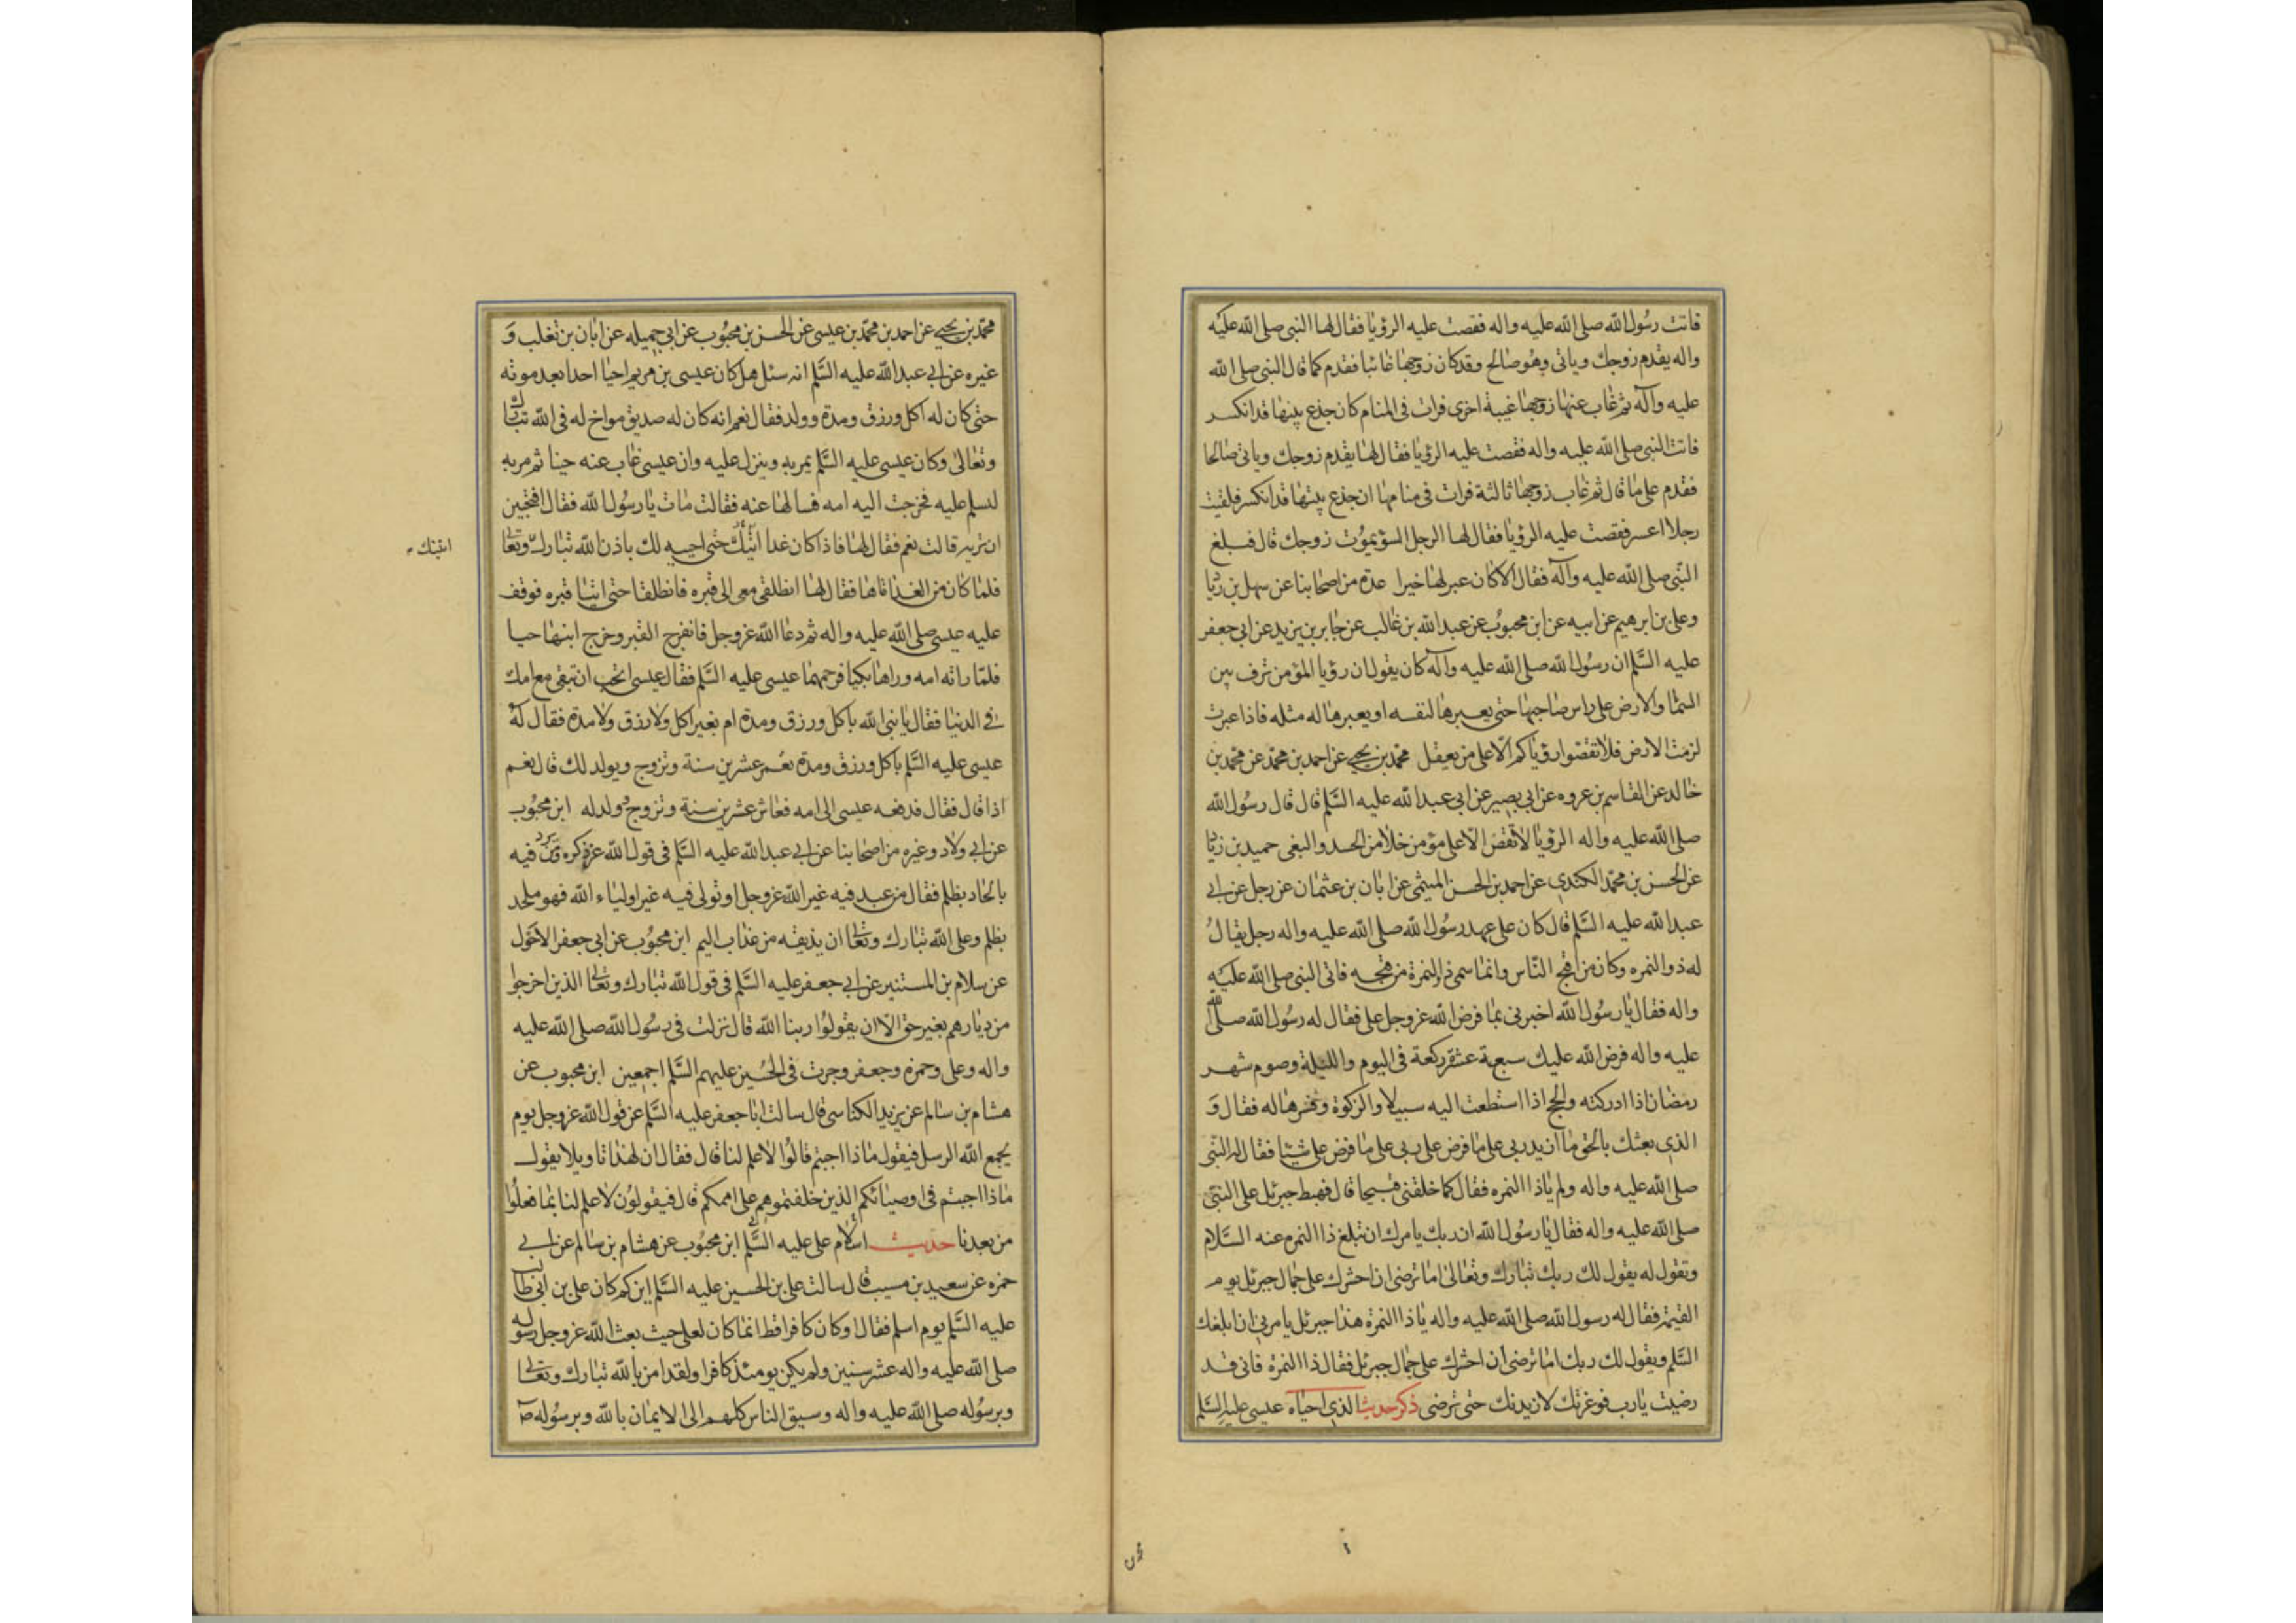 فاتت رسول الله صلى الله عليه واله فقصت عليه الرؤيا فقال لها النبي صلى الله عليه
واله يقدم زوجك وياتي وهو صالح وقد كان زوجها غائبا فقدم كما قال النبي صلى الله
عليه وآله ثم غاب عنها زوجها غيبة اخرى فرات في المنام كان جذع بيتها قد انكسر
فاتت النبي صلى الله عليه واله فقصت عليه الرؤيا فقال لها يقدم زوجك وياتي صالحا
فقدم على ما قال ثم غاب زوجها ثالثة فرات في منامها ان جذع بيتها قد انكسر فلقيت
رجلا اعسر فقصت عليه الرؤيا فقال لها الرجل السؤ يموت زوجك قال فبلغ
النبي صلى الله عليه وآله فقال الا كان عبر لها خيرا عدة من اصحابنا عن سهل بن زيا
وعلي بن ابرهيم عن ابيه عن ابن محبوب عن عبد الله بن غالب عن جابر بن يزيد عن ابي جعفر
عليه السلم ان رسول الله صلى الله عليه وآله كان يقول ان رؤيا المؤمن ترف بين
السما والارض على راس صاحبها حتى يعبرها لنفسه او يعبرها له مثله فاذا عبرت
لزمت الارض فلا تقصوا رؤياكم الا على من يعقل محمد بن يحيى عن احمد بن محمد عن محمد بن
خالد عن القاسم بن عروه عن ابي بصير عن ابي عبد الله عليه السلم قال قال رسول الله
صلى الله عليه واله الرؤيا لا تقص الا على مؤمن خلا من الحسد والبغى حميد بن زيا
عن الحسن بن محمد الكندي عن احمد بن الحسن الميثمى عن ابان بن عثمان عن رجل عن ابي
عبد الله عليه السلم قال كان على عهد رسول الله صلى الله عليه واله رجل يقال
له ذو النمره وكان من اقبح الناس وانما سمى ذا النمرة من قبحه فاتى النبي صلى الله عليه
واله فقال يا رسول الله اخبرني بما فرض الله عز وجل علي فقال له رسول الله صلى الله
عليه واله فرض الله عليك سبعة عشر ركعة في اليوم والليلة وصوم شهر
رمضان اذا ادركته والحج اذا استطعت اليه سبيلا والزكوة وفسرها له فقال و
الذي بعثك بالحق ما ازيد ربي على ما فرض علي ربي على ما فرض علي شيئا فقال له النبي
صلى الله عليه واله ولم ياذا النمره فقال كما خلقني قبيحا قال فهبط جبرئل على النبي
صلى الله عليه واله فقال يا رسول الله ان ربك يامرك ان تبلغ ذا النمره عنه السلام
وتقول له يقول لك ربك تبارك وتعالى اما ترضى ان احشرك على جمال جبرئل يوم
القيمة فقال له رسول الله صلى الله عليه واله ياذا النمرة هذا جبرئل يامرني ان ابلغك
السلم ويقول لك ربك اما ترضى ان احشرك على جمال جبرئل فقال ذا النمرة فاني قد
رضيت يا رب فوعزتك لازيدنك حتى ترضى ذكر حديث الذي احياه عيسى عليه السلم
محمد بن يحيى عن احمد بن محمد بن عيسى عن الحسن بن محبوب عن ابي جميله عن ابان بن تغلب و
غيره عن ابي عبد الله عليه السلم انه سئل هل كان عيسى بن مريم احيا احدا بعد موته
حتى كان له اكل ورزق ومدة وولد فقال نعم انه كان له صديق مواخ له في الله تبارك
وتعالى وكان عيسى عليه السلم يمر به وينزل عليه وان عيسى غاب عنه حينا ثم مر به
ليسلم عليه فخرجت اليه امه فسالها عنه فقالت مات يا رسول الله فقال افتحبين
ان تريه قالت نعم فقال لها فاذا كان غدا اتيتك حتى احييه لك باذن الله تبارك وتعالى
اتيتك
فلما كان من الغد اتاها فقال لها انطلقي معي الى قبره فانطلقا حتى اتيا قبره فوقف
عليه عيسى صلى الله عليه واله ثم دعا الله عز وجل فانفرج القبر وخرج ابنها حيا
فلما راته امه وراها بكيا فرحمهما عيسى عليه السلم فقال عيسى اتحب ان تبقى مع امك
في الدنيا فقال يا نبي الله باكل ورزق ومدة ام بغير اكل ولا رزق ولا مدة فقال له
عيسى عليه السلم باكل ورزق ومدة تعمر عشرين سنة وتزوج ويولد لك قال نعم
اذا قال فقال فدفعه عيسى الى امه فعاش عشرين سنة وتزوج وولد له ابن محبوب
عن ابي ولاد وغيره من اصحابنا عن ابي عبد الله عليه السلم في قول الله عز ذكره ومن يرد فيه
بالحاد بظلم فقال من عبد فيه غير الله عز وجل او تولى فيه غير اولياء الله فهو ملحد
بظلم وعلى الله تبارك وتعالى ان يذيقه من عذاب اليم ابن محبوب عن ابي جعفر الاحول
عن سلام بن المستنير عن ابي جعفر عليه السلم في قول الله تبارك وتعالى الذين اخرجوا
من ديارهم بغير حق الا ان يقولوا ربنا الله قال نزلت في رسول الله صلى الله عليه
واله وعلي وحمزه وجعفر وجرت في الحسين عليهم السلم اجمعين ابن محبوب عن
هشام بن سالم عن يزيد الكناسي قال سالت ابا جعفر عليه السلم عن قول الله عز وجل يوم
يجمع الله الرسل فيقول ماذا اجبتم قالوا لا علم لنا قال فقال ان لهذا تاويلا يقول
ماذا اجبتم في اوصيائكم الذين خلفتموهم على اممكم قال فيقولون لا علم لنا بما فعلوا
من بعدنا حديث اسلام علي عليه السلم ابن محبوب عن هشام بن سالم عن ابي
حمزه عن سعيد بن مسيب قال سالت علي بن الحسين عليه السلم ابن كم كان علي بن ابي طالب
عليه السلم يوم اسلم فقال او كان كافرا قط انما كان لعلي حيث بعث الله عز وجل رسوله
صلى الله عليه واله عشر سنين ولم يكن يومئذ كافرا ولقد امن بالله تبارك وتعالى
وبرسوله صلى الله عليه واله وسبق الناس كلهم الى الايمان بالله وبرسوله ص